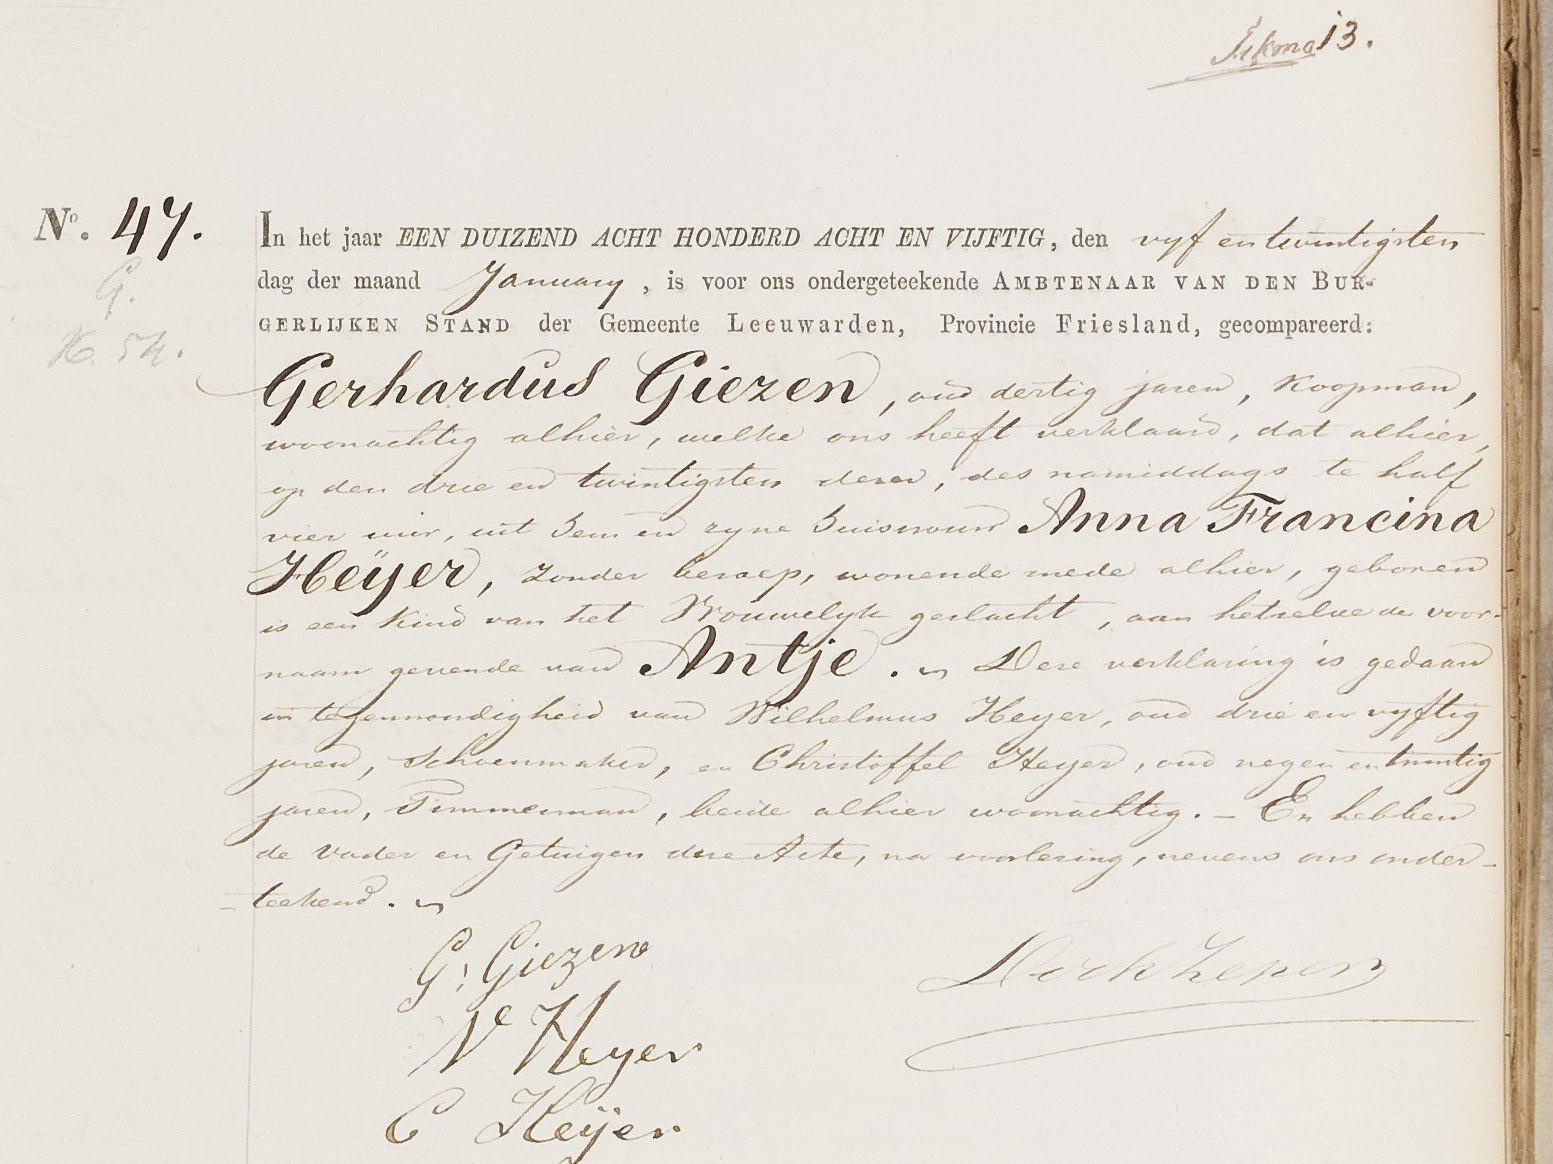 13.
No. 47. In het jaar EEN DUIZEND ACHT HONDERD ACHT EN VIJFTIG, den vyf en twintigsten
dag der maand January, is voor ons ondergeteekende AMBTENAAR VAN DEN BUR-
G.
GERLIJKEN STAND der Gemeente Leeuwarden, Provincie Friesland, gecompareerd:
H. 54.
Gerhardus Giezen, oud dertig jaren, Koopman,
woonachtig alhier, welke ons heeft verklaard, dat alhier,
op den drie en twintigsten dezer, des namiddags te half
vier uur, uit hem en zyne huisvrouw Anna Francina
Heÿer, zonder beroep, wonende mede alhier, geboren
is een kind van het Vrouwelyk geslacht, aan hetzelve de voor-
naam gevende van Antje. Deze verklaring is gedaan
in tegenwoordigheid van Wilhelmus Heyer, oud drie en vyftig
jaren, Schoenmaker, en Christoffel Heyer, oud negen en twintig
jaren, Timmerman, beide alhier woonachtig. - En hebben
de Vader en Getuigen deze Acte, na voorlezing, nevens ons onder-
teekend.
G. Giezen
W Heyer
C Heÿer